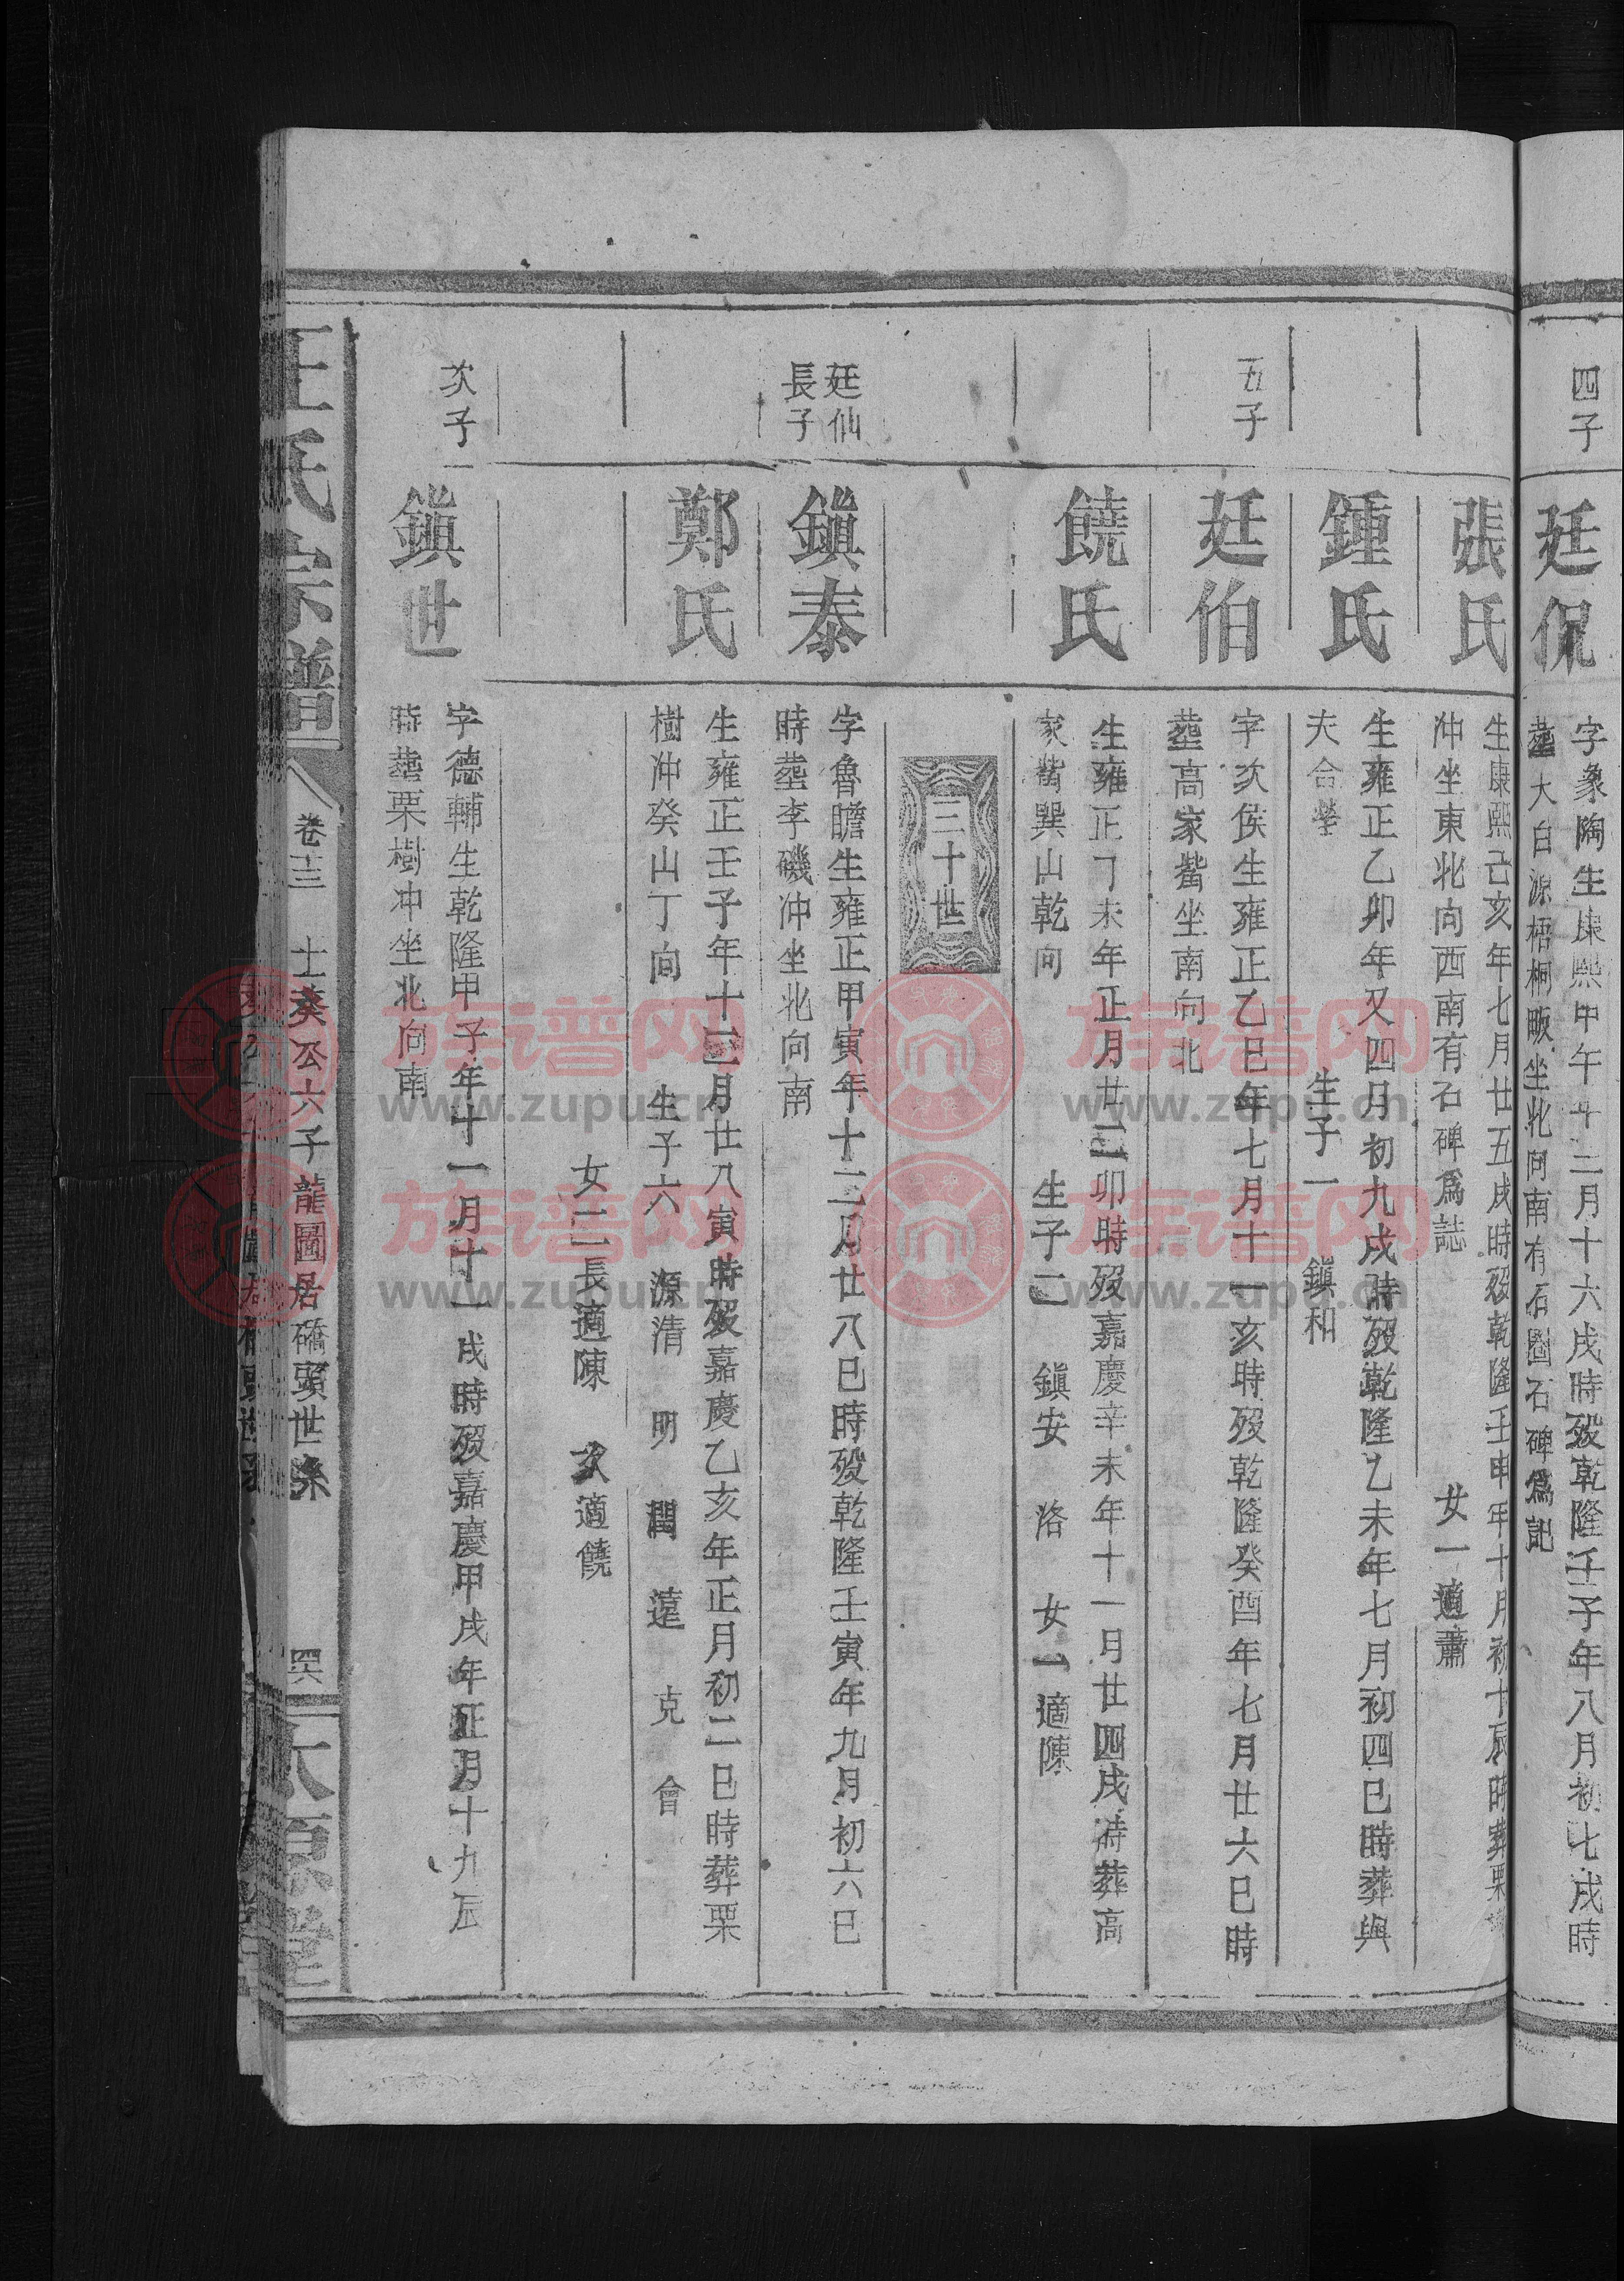 四子
廷侃
字象陶生康熙甲午年二月十六戌時殁乾隆壬子年八月初七戌時
塟大白源梧桐畈坐北向南有石圍石碑爲記
張氏
生康熙己亥年七月廿五戌時殁乾隆壬申年十月初十辰時葬栗
冲坐東北向西南有石碑爲誌
女一適蕭
鍾氏
生雍正乙卯年又四月初九戌時殁乾隆乙未年七月初四巳時葬與
夫合塋
生子一
鎭和
五子
廷伯
字次侯生雍正乙巳年七月十一亥時殁乾隆癸酉年七月廿六巳時
塟高家嘴坐南向北
饒氏
生雍正丁未年正月廿三卯時殁嘉慶辛未年十一月廿四戌時葬高
家嘴巽山乾向
生子二
鎭安
洛
女一適陳
三十世
廷仙
長子
鎭泰
字魯瞻生雍正甲寅年十二月廿八巳時殁乾隆壬寅年九月初六巳
時塟李磯冲坐北向南
鄭氏
生雍正壬子年十三月廿八寅時殁嘉慶乙亥年正月初二巳時葬栗
樹冲癸山丁向
生子六
源清
明
潤
遠
克
會
女二長適陳
次適饒
次子
鎭世
字德輔生乾隆甲子年十一月十一戌時殁嘉慶甲戌年正月十九辰
時塟栗樹冲坐北向南
王氏宗譜
卷十三
士葵公六子龍圖居礄頭世系
四六
太原堂
族谱网
www.zupu.cn
族谱网
www.zupu.cn
族谱网
www.zupu.cn
族谱网
www.zupu.cn